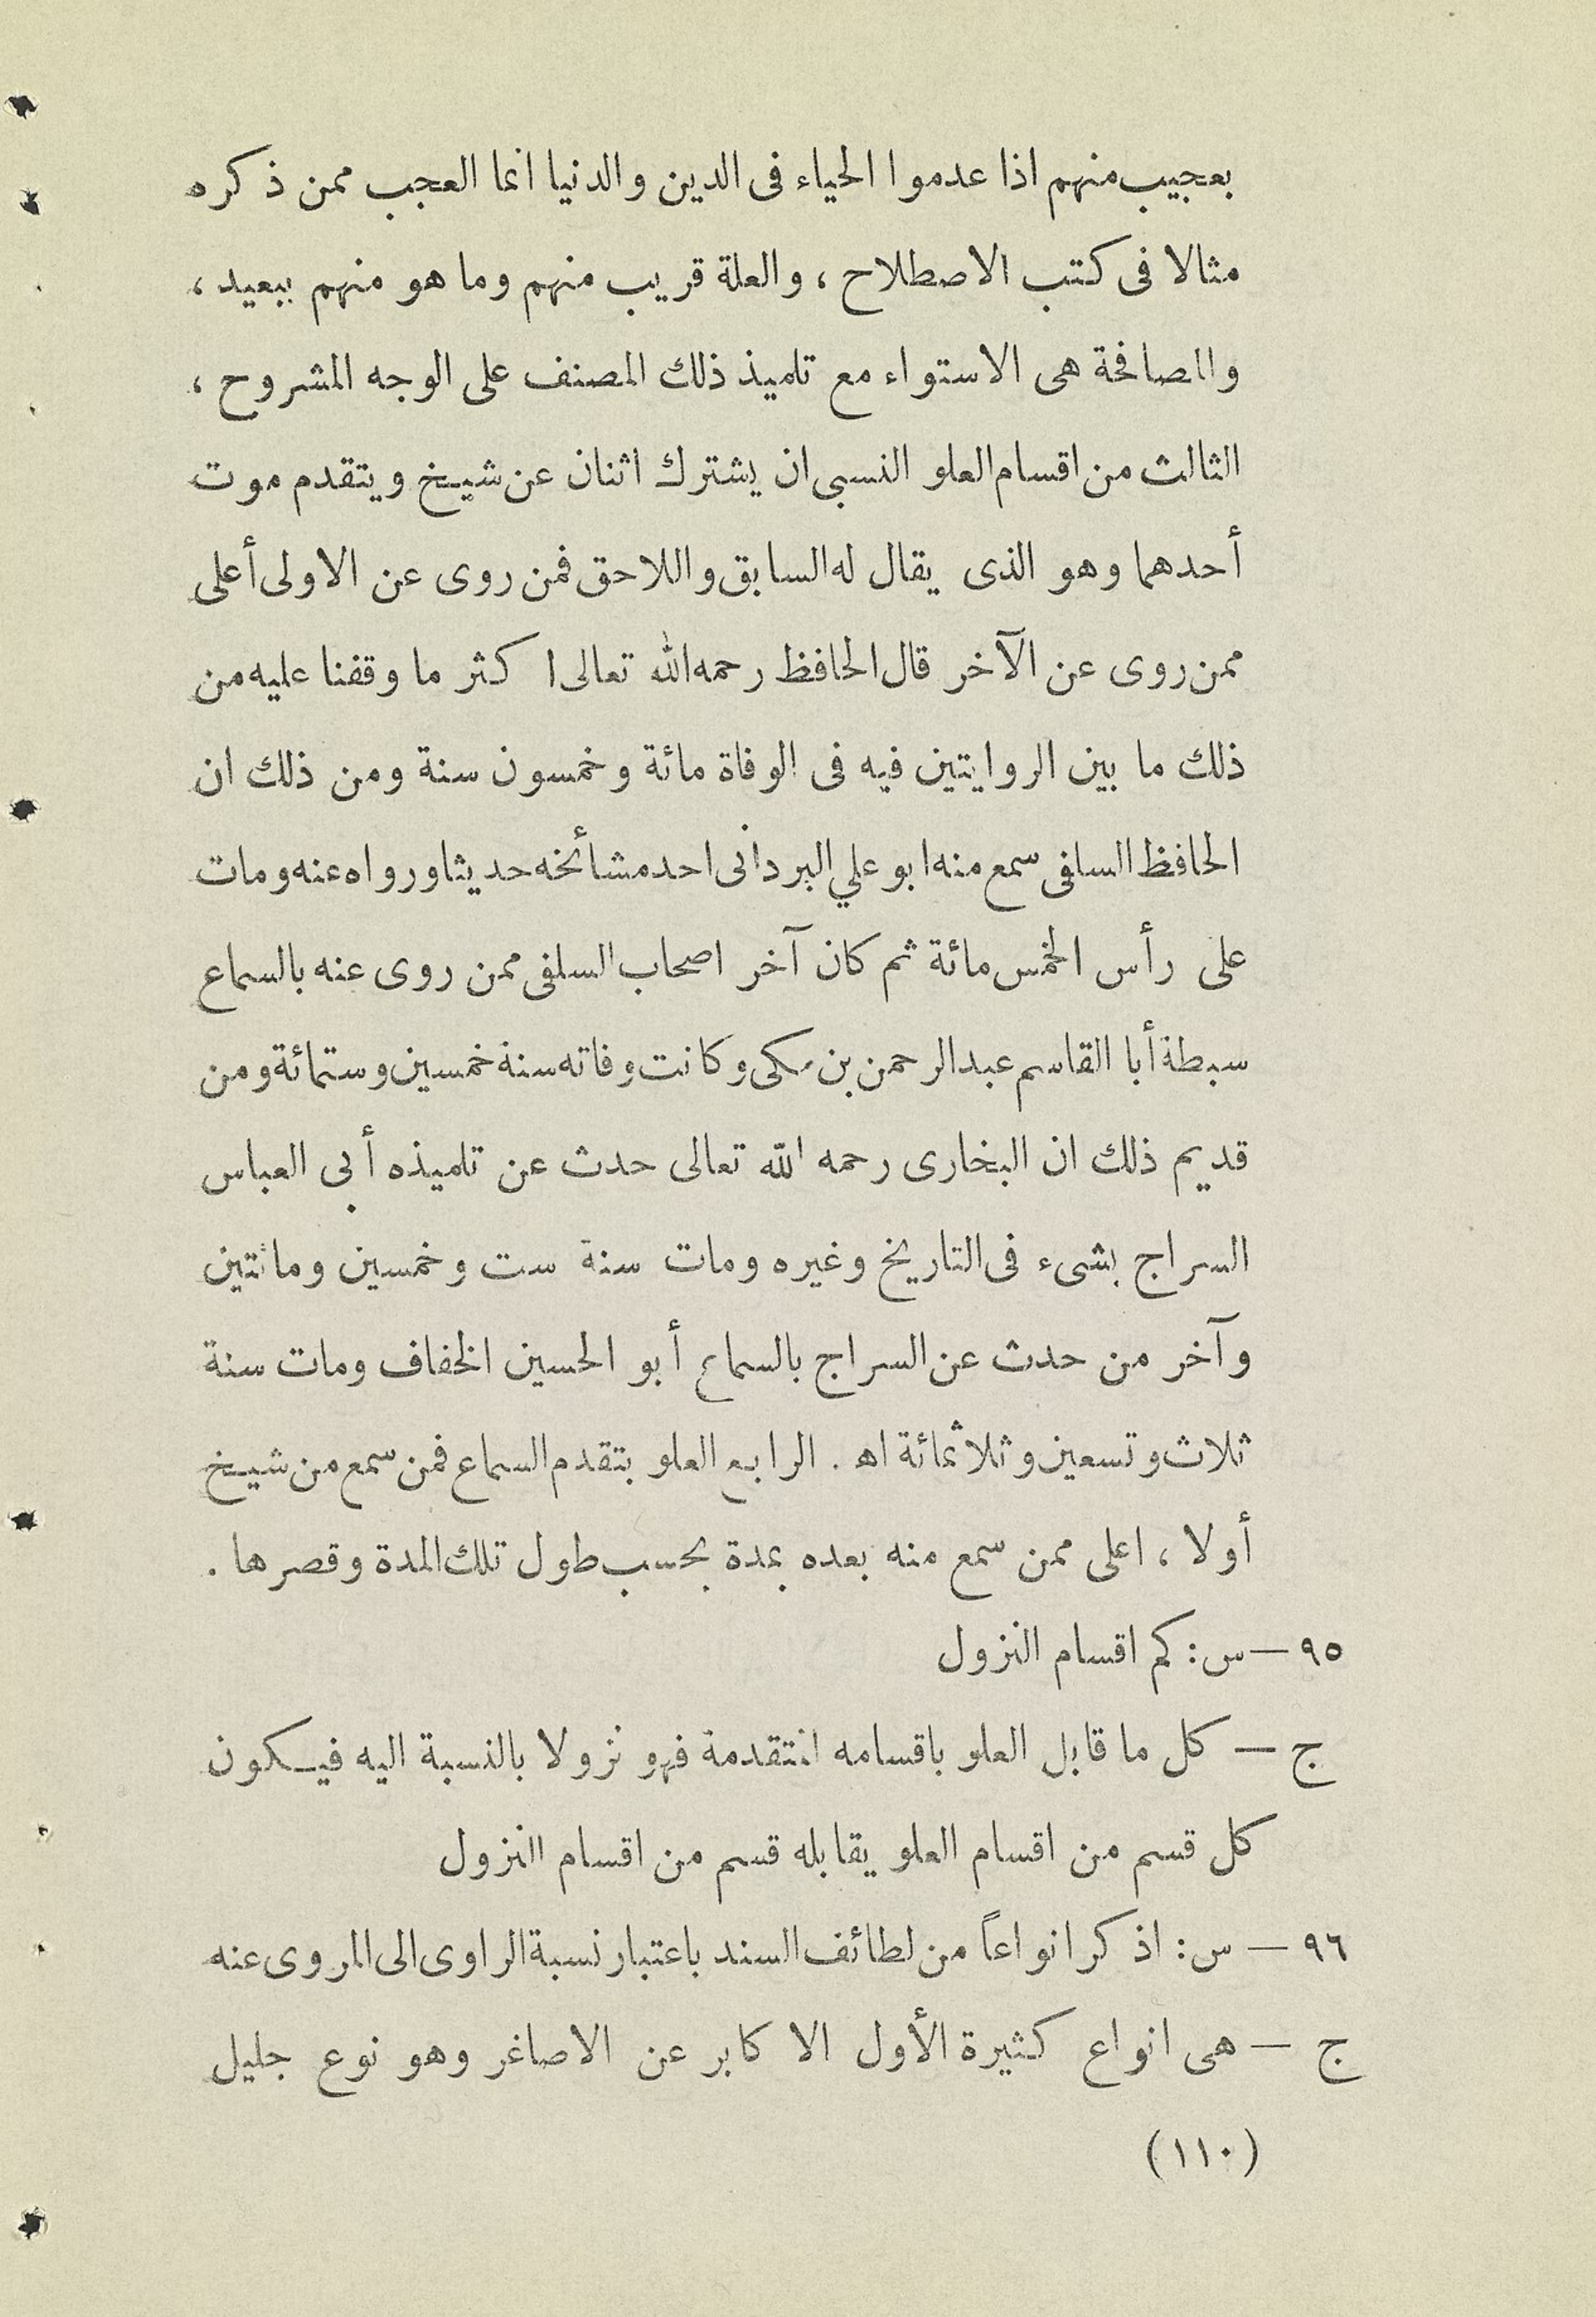 بعجيب منهم اذا عدموا الحياء فى الدين والدنيا انما العجب ممن ذكره
مثالا فى كتب الاصطلاح ، والعلة قريب منهم وما هو منهم ببعيد ،
والمصافحة هى الاستواء مع تلميذ ذلك المصنف على الوجه المشروح ،
الثالث من اقسام العلو النسبى ان يشترك اثنان عن شيخ ويتقدم موت
أحدهما وهو الذى يقال له السابق واللاحق فمن روى عن الاولى أعلى
ممن روى عن الآخر قال الحافظ رحمه الله تعالى اكثر ما وقفنا عليه من
ذلك ما بين الروايتين فيه فى الوفاة مائة وخمسون سنة ومن ذلك ان
الحافظ السلفى سمع منه ابو علي البردانى احد مشائخه حديثا ورواه عنه ومات
على رأس الخمس مائة ثم كان آخر اصحاب السلفى ممن روى عنه بالسماع
سبطة أبا القاسم عبد الرحمن بن مكى وكانت وفاته سنة خمسين وستمائة ومن
قديم ذلك ان البخارى رحمه الله تعالى حدث عن تلميذه أبى العباس
السراج بشىء فى التاريخ وغيره ومات سنة ست وخمسين ومائتين
وآخر من حدث عن السراج بالسماع أبو الحسين الخفاف ومات سنة
ثلاث وتسعين وثلاثمائة اه . الرابع العلو بتقدم السماع فمن سمع من شيخ
أولا ، اعلى ممن سمع منه بعده بمدة بحسب طول تلك المدة وقصرها .
٩٥ — س : كم اقسام النزول
ج — كل ما قابل العلو باقسامه المتقدمة فهو نزولا بالنسبة اليه فيكون
كل قسم من اقسام العلو يقابله قسم من اقسام النزول
٩٦ — س : اذكر انواعاً من لطائف السند باعتبار نسبة الراوى الى المروى عنه
ج — هى انواع كثيرة الأول الاكابر عن الاصاغر وهو نوع جليل
(١١٠)